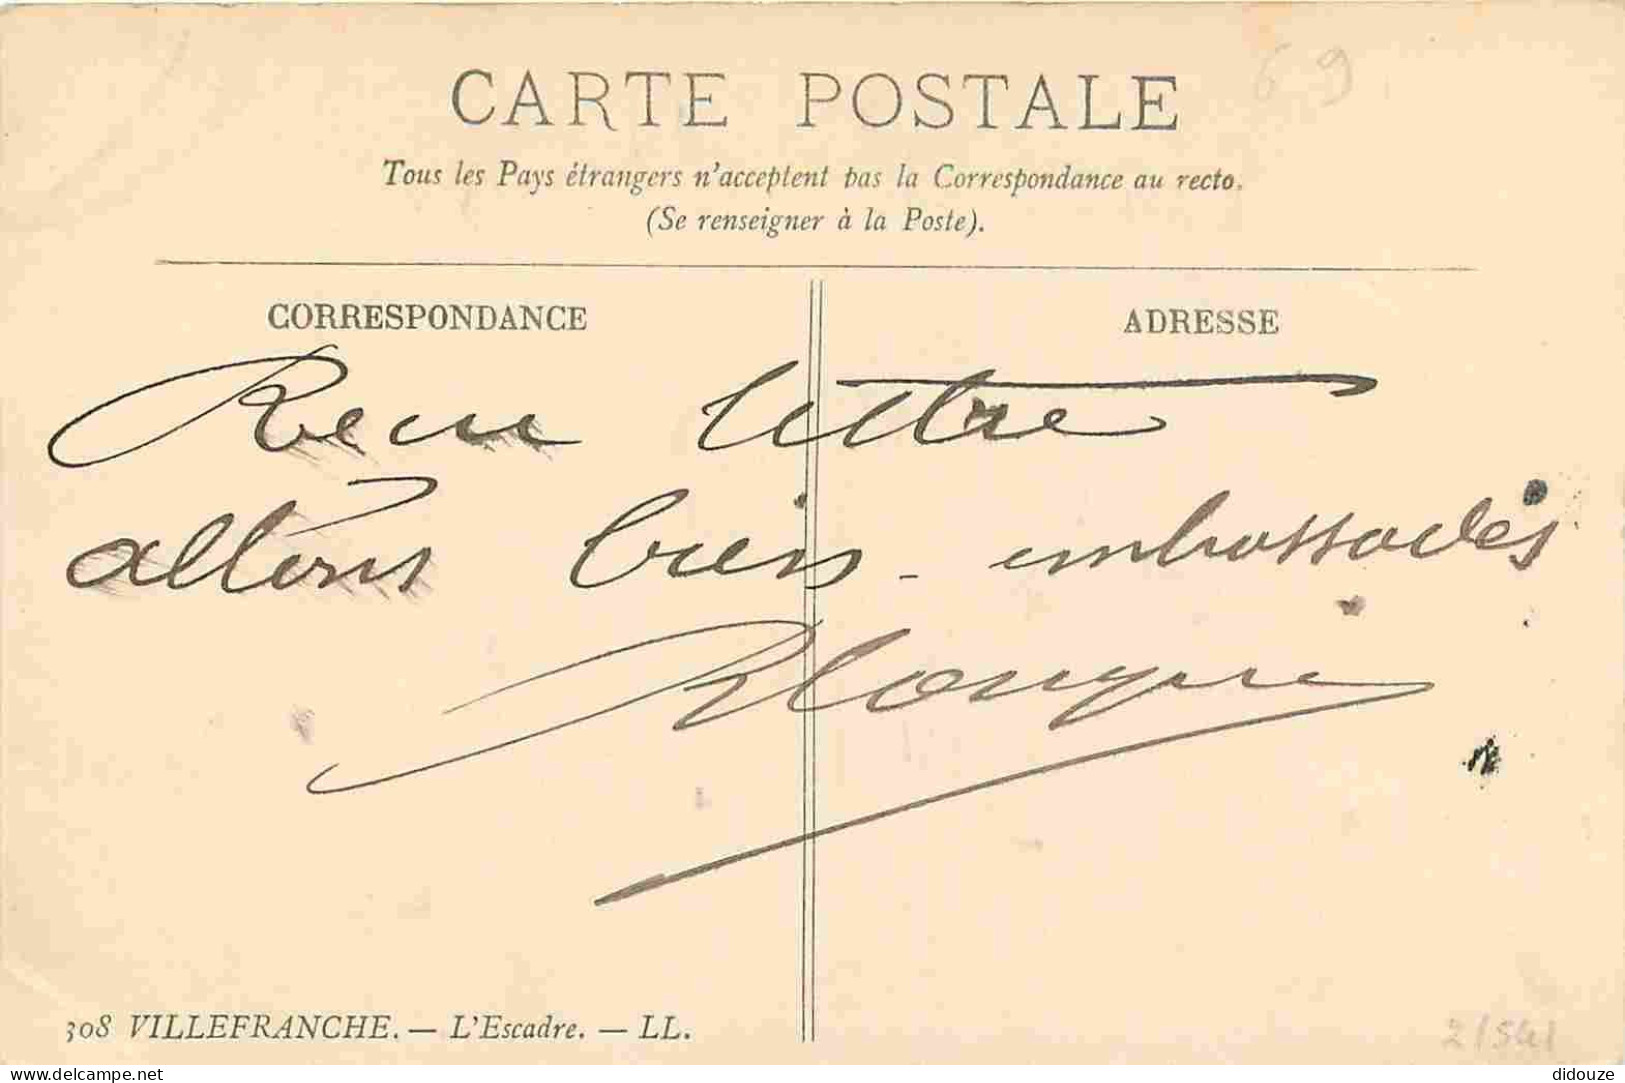 69
CARTE POSTALE
Tous les Pays étrangers n'acceptent pas la Correspondance au recto.
(Se renseigner à la Poste).
CORRESPONDANCE
ADRESSE
Recu lettre
allons bien - embrassades
308 VILLEFRANCHE. — L'Escadre. — LL.
2/541
delcampe.net
didouze